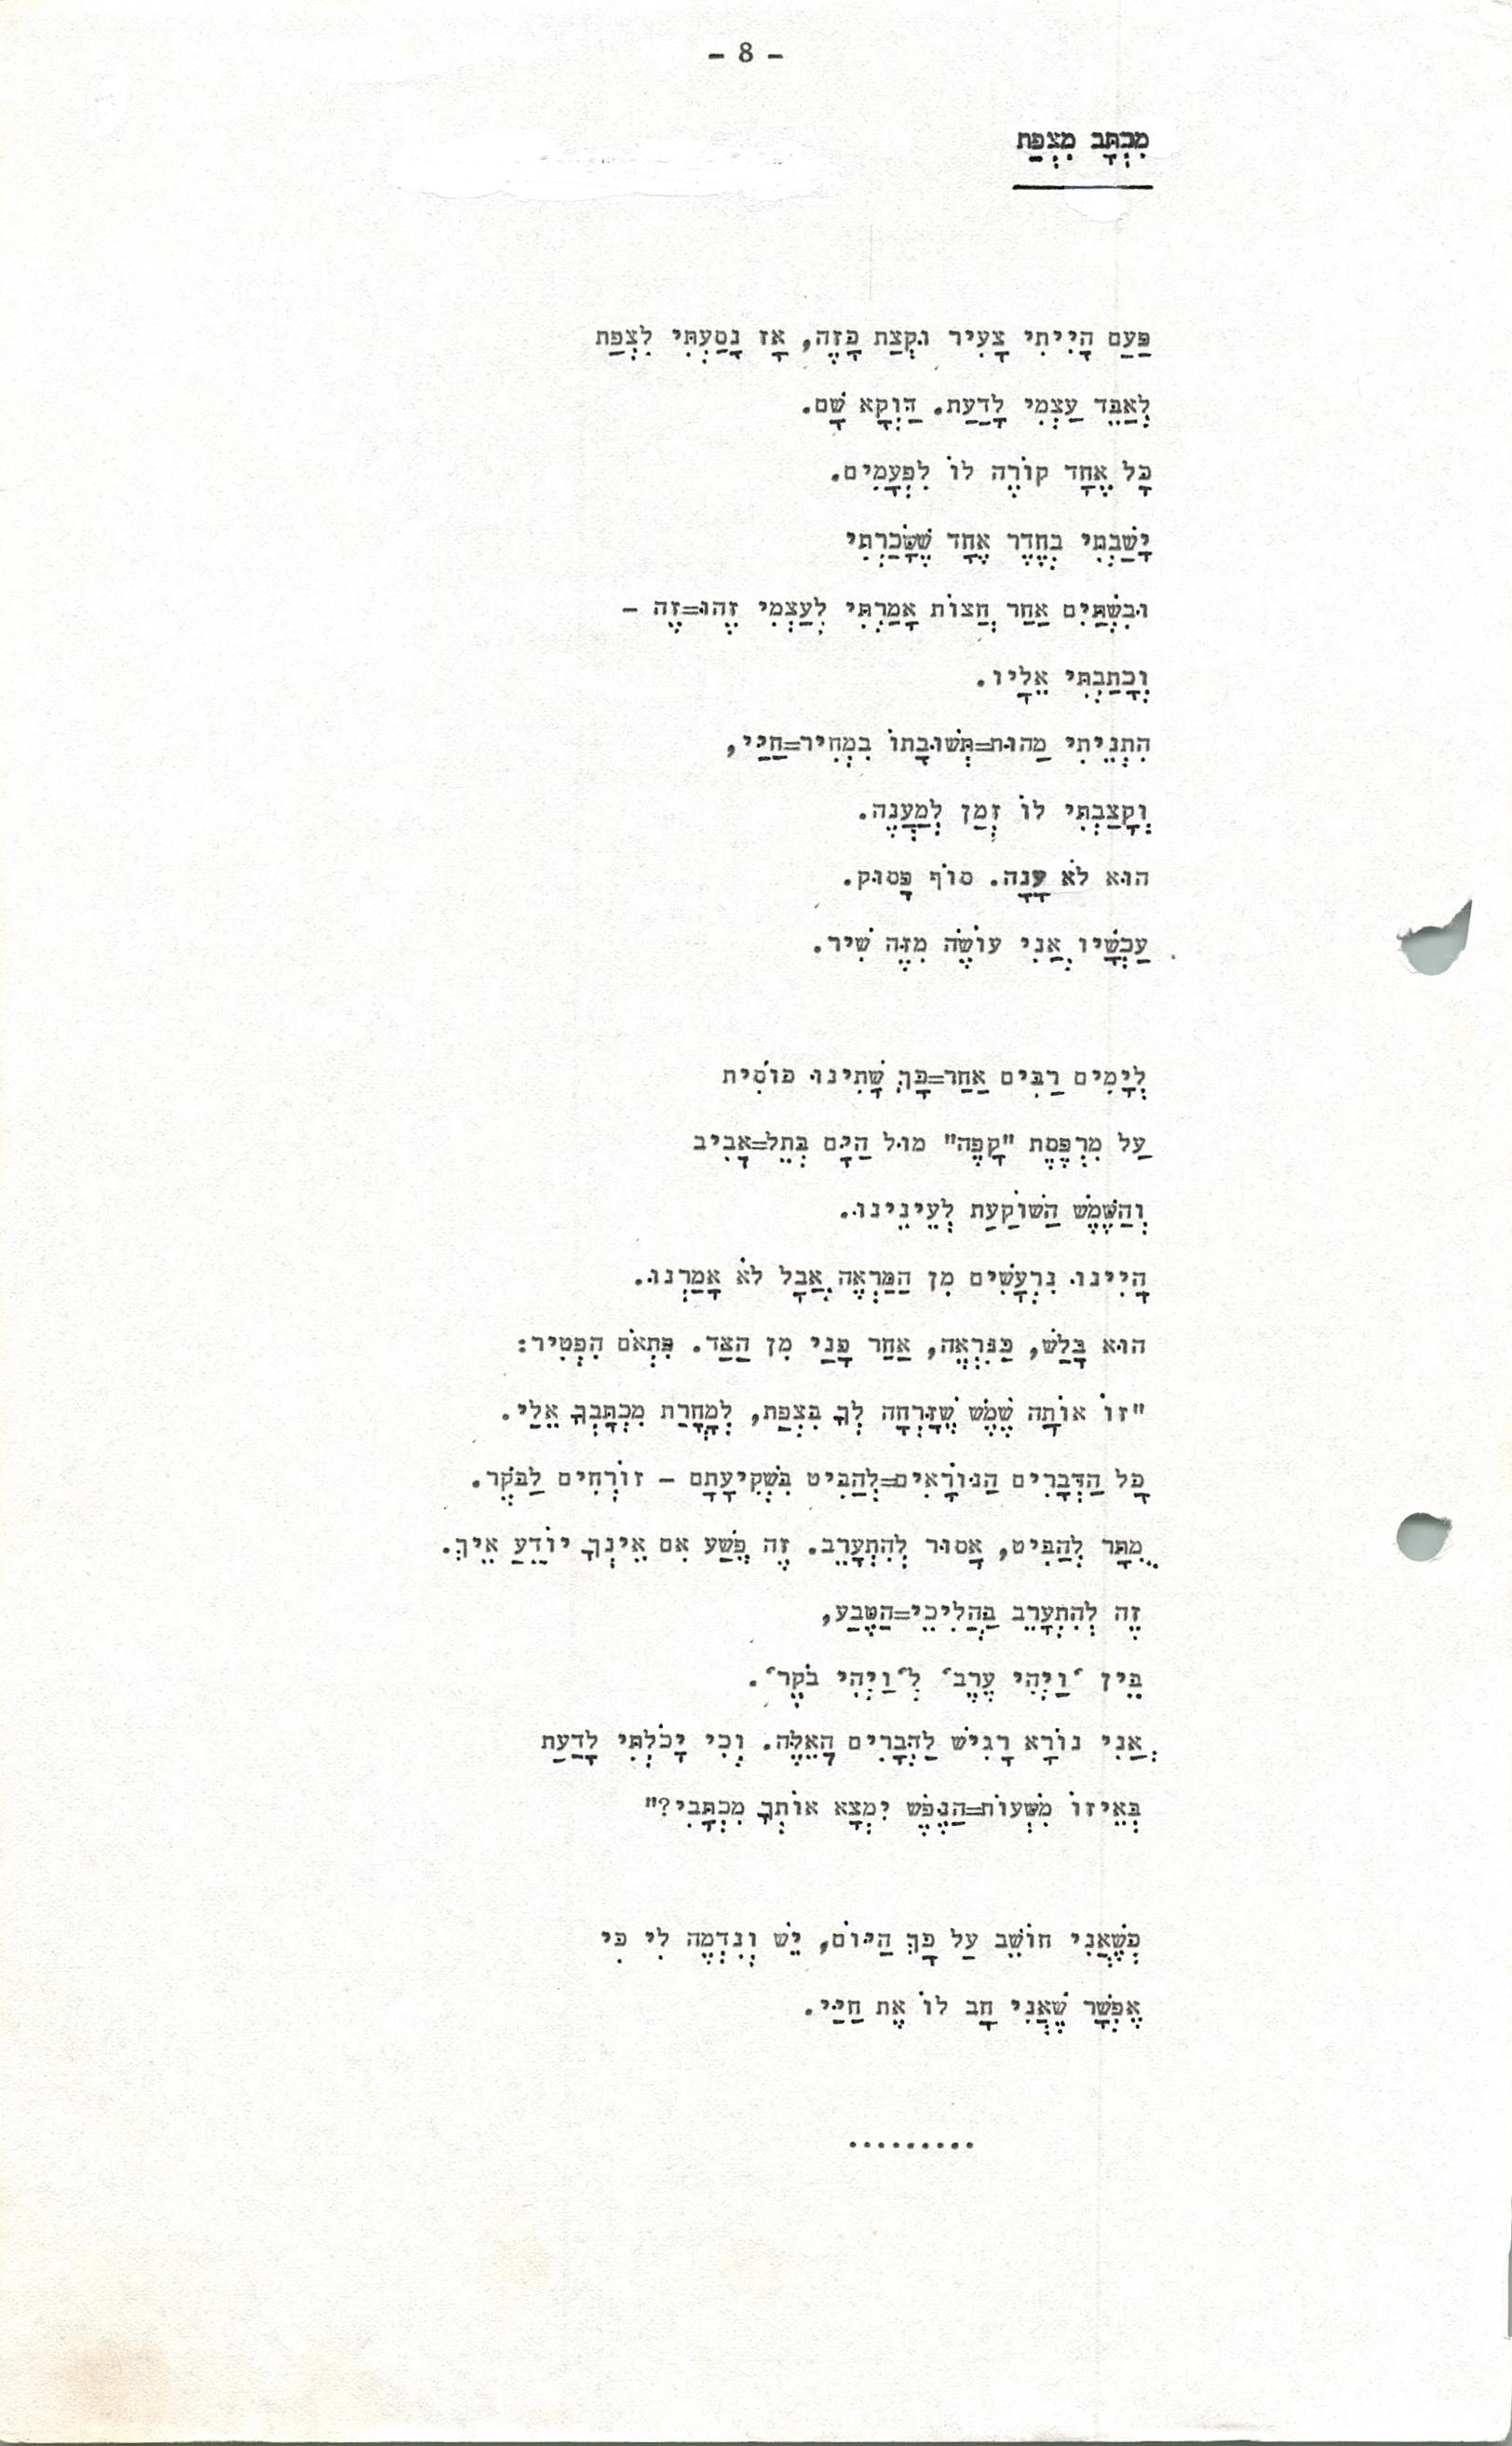 - 8 -
מִכְתָּב מִצְּפַת
פַּעַם הָיִיתִי צָעִיר וּקְצַת כָּזֶה, אָז נָסַעְתִּי לִצְפַת
לְאַבֵּד עַצְמִי לָדַעַת. דַּוְקָא שָׁם.
כָּל אֶחָד קוֹרֶה לוֹ לִפְעָמִים.
יָשַׁבְתִּי בְּחֶדֶר אֶחָד שֶׁשָּׂכַרְתִּי
וּבִשְׁתַּיִם אַחַר חֲצוֹת אָמַרְתִּי לְעַצְמִי זֶהוּ=זֶה –
וְכָתַבְתִּי אֵלָיו.
הִתְנֵיתִי מַהוּת=תְּשׁוּבָתוֹ בִּמְחִיר=חַיַּי,
וְקָצַבְתִּי לוֹ זְמַן לְמַעֲנֶה.
הוּא לֹא עָנָה. סוֹף פָּסוּק.
עַכְשָׁיו אֲנִי עוֹשֶׂה מִזֶּה שִׁיר.
לְיָמִים רַבִּים אַחַר=כָּךְ שָׁתִינוּ כּוֹסִית
עַל מִרְפֶּסֶת "קָפֶה" מוּל הַיָּם בְּתֵל=אָבִיב
וְהַשֶּׁמֶשׁ הַשּׁוֹקַעַת לְעֵינֵינוּ.
הָיִינוּ נִרְעָשִׁים מִן הַמַּרְאֶה אֲבָל לֹא אָמַרְנוּ.
הוּא בָּלַשׁ, כַּנִּרְאֶה, אַחַר פָּנַי מִן הַצַּד. פִּתְאֹם הִפְטִיר:
"זוֹ אוֹתָהּ שֶׁמֶשׁ שֶׁזָּרְחָה לְךָ בִּצְפַת, לְמָחֳרַת מִכְתָּבְךָ אֵלַי.
כָּל הַדְּבָרִים הַנּוֹרָאִים=לְהַבִּיט בִּשְׁקִיעָתָם – זוֹרְחִים לַבֹּקֶר.
מֻתָּר לְהַבִּיט, אָסוּר לְהִתְעָרֵב. זֶה פֶּשַׁע אִם אֵינְךָ יוֹדֵעַ אֵיךְ.
זֶה לְהִתְעָרֵב בַּהֲלִיכֵי=הַטֶּבַע,
בֵּין 'וַיְהִי עֶרֶב' לְ'וַיְהִי בֹקֶר'.
אֲנִי נוֹרָא רָגִישׁ לַדְּבָרִים הָאֵלֶּה. וְכִי יָכֹלְתִּי לָדַעַת
בְּאֵיזוֹ מִשְּׁעוֹת=הַנֶּפֶשׁ יִמְצָא אוֹתְךָ מִכְתָּבִי?"
כְּשֶׁאֲנִי חוֹשֵׁב עַל כָּךְ הַיּוֹם, יֵשׁ וְנִדְמֶה לִי כִּי
אֶפְשָׁר שֶׁאֲנִי חָב לוֹ אֶת חַיַּי.
.........